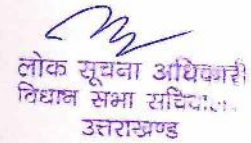 लोक सूचना अधिकारी
विधान सभा सचिवा...
उत्तराखण्ड